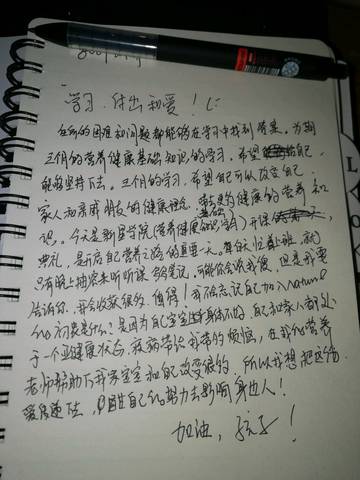 学习、付出和爱！
在所的困难和问题都能够在学习中找到答案。为期
三个月的营养健康基础知识的学习。希望给自己
能够坚持下去。三个月的学习，希望自己可以改变自己、
家人和亲戚朋友的健康理念，更健康的营养知
识。今天是新星学院(营养健康基础知识)开课
典礼，是开启自己营养之路的第一天。每天忙着上班，就
只有晚上抽空来听听课，多记笔记，可能你会说我傻，但是我要
告诉你，我会收获很多，值得！我依然忘记自己加入Nature
的初衷是什么？是因为自己宝宝，自己和家人都处
于一个亚健康状态，疾病带给我带的烦恼，在我的营养
老师帮助下我家宝宝和自己改变很多，所以我想把这份
爱传递下去，用自己的努力去影响身边人！
加油，